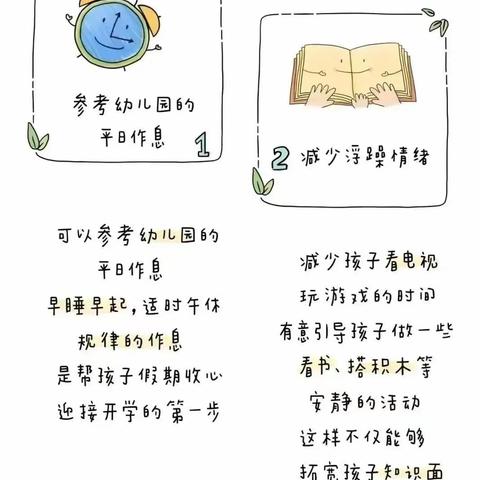 参考幼儿园的
平日作息
1
可以参考幼儿园的
平日作息
早睡早起,适时午休
规律的作息
是帮孩子假期收心
迎接开学的第一步
2 减少浮躁情绪
减少孩子看电视
玩游戏的时间
有意引导孩子做一些
看书、搭积木等
安静的活动
这样不仅能够
拓宽孩子知识面